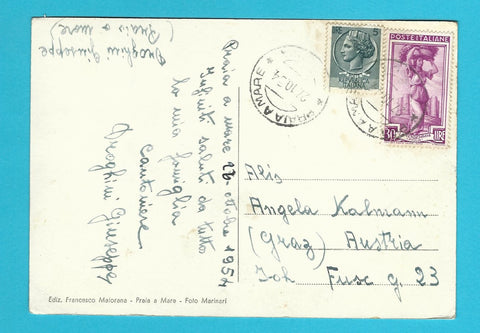 Droghini Giuseppe
(Praia a mare)
Praia a mare 22 ottobre 1954
Infiniti saluti da tutto
la mia famiglia
cantoniere
Droghini Giuseppe
POSTE ITALIANE
30 LIRE
PRAIA A MARE
Alis
Angela Kalmann
(Graz) Austria
Joh Fux g. 23
Ediz. Francesco Maiorana - Praia a Mare - Foto Marinari